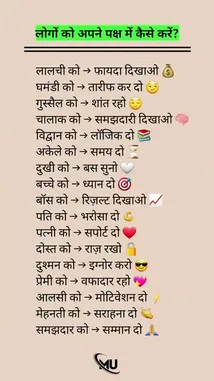 लोगों को अपने पक्ष में कैसे करें?
लालची को → फायदा दिखाओ 💰
घमंडी को → तारीफ कर दो 😏
गुस्सैल को → शांत रहो 😌
चालाक को → समझदारी दिखाओ 🧠
विद्वान को → लॉजिक दो 📚
अकेले को → समय दो ⏳
दुखी को → बस सुनो 🤍
बच्चे को → ध्यान दो 🎯
बॉस को → रिज़ल्ट दिखाओ 📈
पति को → भरोसा दो 💪
पत्नी को → सपोर्ट दो ❤️
दोस्त को → राज़ रखो 🔒
दुश्मन को → इग्नोर करो 😎
प्रेमी को → वफादार रहो 💖
आलसी को → मोटिवेशन दो ⚡
मेहनती को → सराहना दो 👏
समझदार को → सम्मान दो 🙏
MU